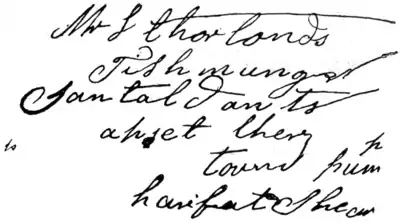 Mr S thorlonds
Fishmunger
Santaldants
apset they
town pum p
harifat Shear